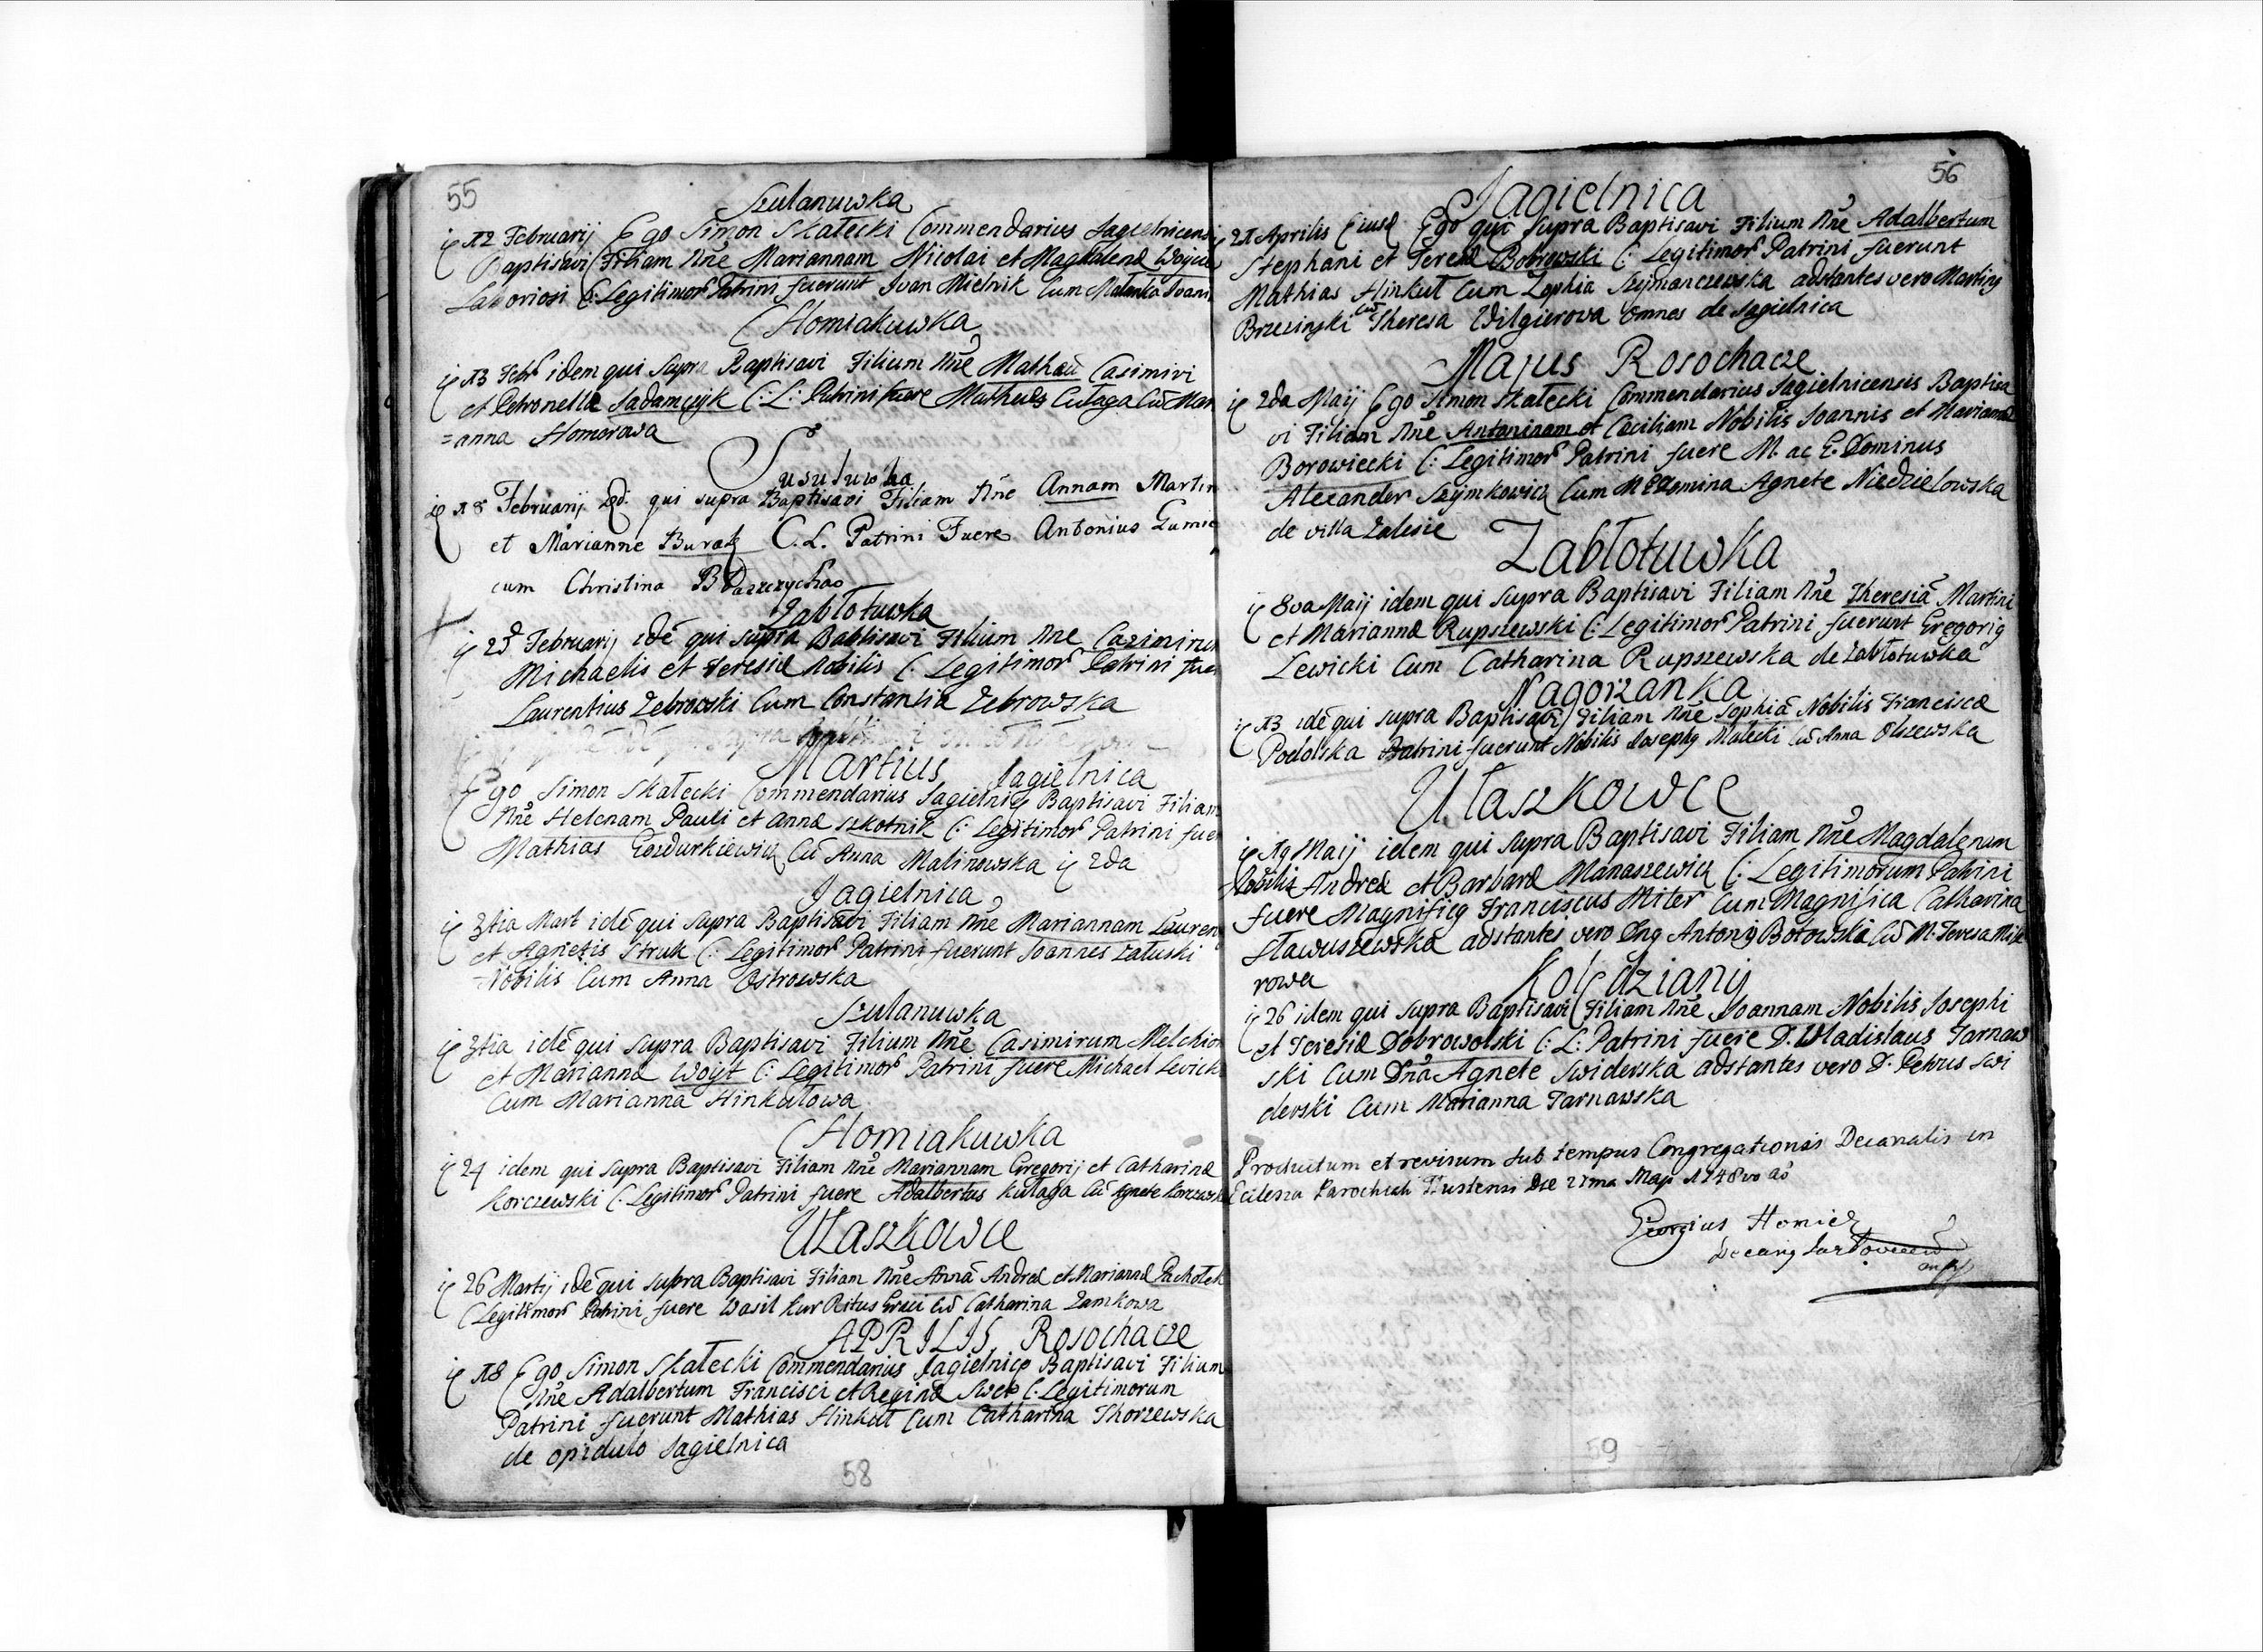 55
Szulanuwka
12 Februarij Ego Simon Skałecki Commendarius Jagielnicensi
Baptisavi Filiam Nne Mariannam Nicolai et Magdalenæ
Laboriosi C: Legitimor Patrini fuerunt Ivan Mielnik Cum
Homiakuwka
13 Febr idem qui supra Baptisavi Filium Nne Mathæū Casimiri
et Petronellæ Sadamczyk C: L: Patrini fuere Matheus Cułaga Cū Mari
=anna Homorowa
18 Februarij qui supra Baptisavi Filiam Nne Annam Martin
et Marianne Burak C. L. Patrini Fuere Antonius
cum Christina
Zabłotuwka
Februarij idē qui supra Baptisavi Filium Nne Casimirum
Michaelis et Teresiæ Nobilis C: Legitimor Patrini fue
Laurentius Zebrowski Cum Constantia Zebrowska
Martius Jagielnica
Ego Simon Skałecki Commendarius Baptisavi Filiam
Nne Helenam Pauli et Annæ Szkotnik C: Legitimor Patrini fue
Mathias Cū Anna Malinowska 2da
Jagielnica
3tia Mart idē qui supra Baptisavi Filiam Nne Mariannam Lauren
et Agnetis Struk C: Legitimor Patrini fuerunt Joannes Załuski
Nobilis Cum Anna Ostrowska
Szulanuwka
3tia idē qui supra Baptisavi Filium Nne Casimirum Melchior
et Mariannæ Woyt C: Legitimor Patrini fuere Michael Levicki
Cum Marianna Hinkułowa
Homiakuwka
24 idem qui supra Baptisavi Filiam Nne Mariannam Gregorij et Catharinæ
Korczewski C: Legitimor Patrini fuere Adalbertus Kułaga Cū Agnete
Ułaszkowce
26 Martij idē qui supra Baptisavi Filiam Nne Annā Andreæ et Mariannæ
C Legitimor Patrini fuere Wasil Kur Ritus Græci Cū Catharina Zamkowa
APRILIS Rosochacze
18 Ego Simon Skałecki Commendarius Baptisavi Filium
Nne Adalbertum Francisci et Reginæ C: Legitimorum
Patrini fuerunt Mathias Hinkuł Cum Catharina Thorzewska
de opidulo Jagielnica
58
56
Jagielnica
21 Aprilis Eiusd Ego qui supra Baptisavi Filium Nne Adalbertum
Stephani et Teresiæ Bobrowski C: Legitimor Patrini fuerunt
Mathias Hinkuł Cum Zophia Szymanczewska adstantes vero
Brzezinski cū Theresa Wilgierova omnes de Jagielnica
Majus Rosochacze
2da Maij Ego Simon Skałecki Commendarius Jagielnicensis Baptisa
vi Filiam Nne Antoninam et Cæciliam Nobilis Joannis et Mariannæ
Borowiecki C: Legitimor Patrini fuere M. ac G. Dominus
Alexander Szymkowicz Cum Domina Agnete Niedzielowska
de villa Zalesie
Zabłotuwka
8va Maij idem qui supra Baptisavi Filiam Nne Theresiā Martini
et Mariannæ Rupszewski C: Legitimor Patrini fuerunt
Lewicki Cum Catharina Rupszewska de Zabłotuwka
Nagorzanka
13 idē qui supra Baptisavi Filiam Nne Sophiā Nobilis Franciscæ
Podolska Patrini fuerunt Nobilis Małecki Cū Anna Olszewska
Ułaszkowce
19 Maij idem qui supra Baptisavi Filiam Nne Magdalenam
Nobilis Andreæ et Barbaræ Manaszewicz C: Legitimorum Patrini
fuere Franciscus Miter Cum Magnifica Catharina
Sławuszewska adstantes vero Cū M. Teresa Mite
rowa
Kolędziany
26 idem qui supra Baptisavi Filiam Nne Joannam Nobilis Josephi
et Teresiæ Dobrowolski C: L: Patrini fuere D. Wladislaus Tarnaw
ski Cum Dna Agnete Swiderska adstantes vero D. Petrus Swi
derski Cum Marianna Tarnawska
Productum et revisum sub tempus Congregationis Decanalis in
Ecclesia Parochiali Die 21ma Maji 1748vo
Georgius
59